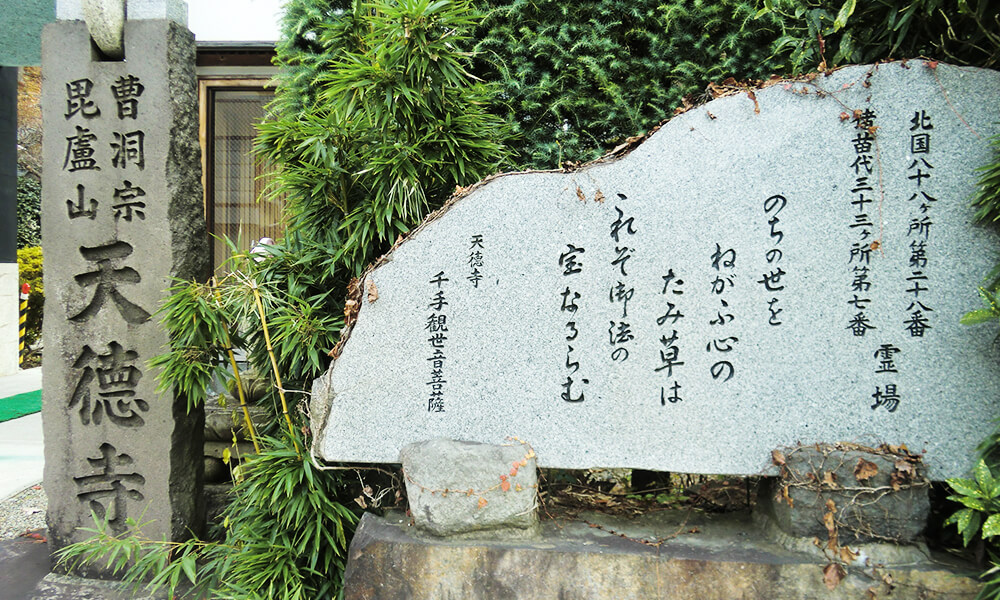 曹洞宗
毘盧山
天徳寺
北国八十八ヶ所第二十八番
猪苗代三十三ヶ所第七番
霊場
のちの世を
ねがふ心の
たみ草は
これぞ御法の
宝なるらむ
天徳寺
千手観世音菩薩